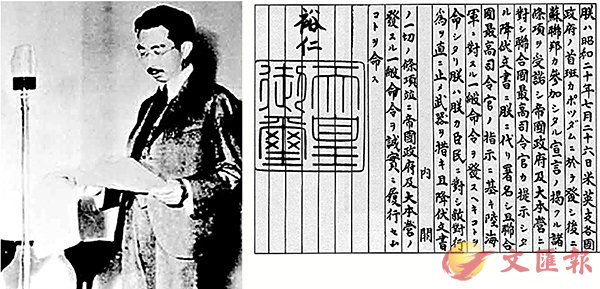 朕ハ昭和二十年七月二十六日米英支各國
政府ノ首班カポツダムニ於テ發シ後ニ
蘇聯邦カ參加シタル宣言ノ掲クル諸
條項ヲ受諾シ帝國政府及大本營ニ
對シ聯合國最高司令官カ提示シタ
ル降伏文書ニ朕ニ代リ署名シ且聯合
國最高司令官ノ指示ニ基キ陸海
軍ニ對スル一般命令ヲ發スヘキコトヲ
命シタリ朕ハ朕カ臣民ニ對シ敵對行
為ヲ直ニ止メ武器ヲ措キ且降伏文書
内閣
ノ一切ノ條項竝ニ帝國政府及大本營ノ
發スル一般命令ヲ誠實ニ履行セム
コトヲ命ス
裕仁
天皇
御璽
文匯報